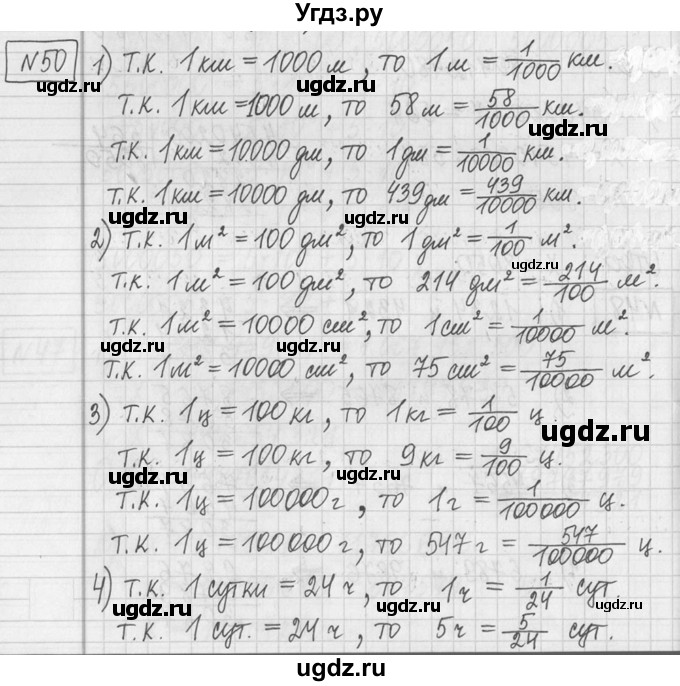 Угдз.ру
№50 1) Т.К. 1 км = 1000 м, то 1 м = 1/1000 км.
Т.К. 1 км = 1000 м, то 58 м = 58/1000 км.
ugdz.ru
Т.К. 1 км = 10000 дм, то 1 дм = 1/10000 км.
ugdz.ru
Т.К. 1 км = 10000 дм, то 439 дм = 439/10000 км.
ugdz.ru ugdz.ru ugdz.ru
2) Т.К. 1 м² = 100 дм², то 1 дм² = 1/100 м².
Т.К. 1 м² = 100 дм², то 214 дм² = 214/100 м².
Т.К. 1 м² = 10000 см², то 1 см² = 1/10000 м².
ugdz.ru ugdz.ru
Т.К. 1 м² = 10000 см², то 75 см² = 75/10000 м².
3) Т.К. 1 ц = 100 кг, то 1 кг = 1/100 ц.
ugdz.ru
Т.К. 1 ц = 100 кг, то 9 кг = 9/100 ц.
ugdz.ru ugdz.ru
Т.К. 1 ц = 100000 г, то 1 г = 1/100000 ц.
Т.К. 1 ц = 100000 г, то 547 г = 547/100000 ц.
4) Т.К. 1 сутки = 24 ч, то 1 ч = 1/24 сут.
ugdz.ru ugdz.ru ugdz.ru
Т.К. 1 сут. = 24 ч, то 5 ч = 5/24 сут.
ugdz.ru